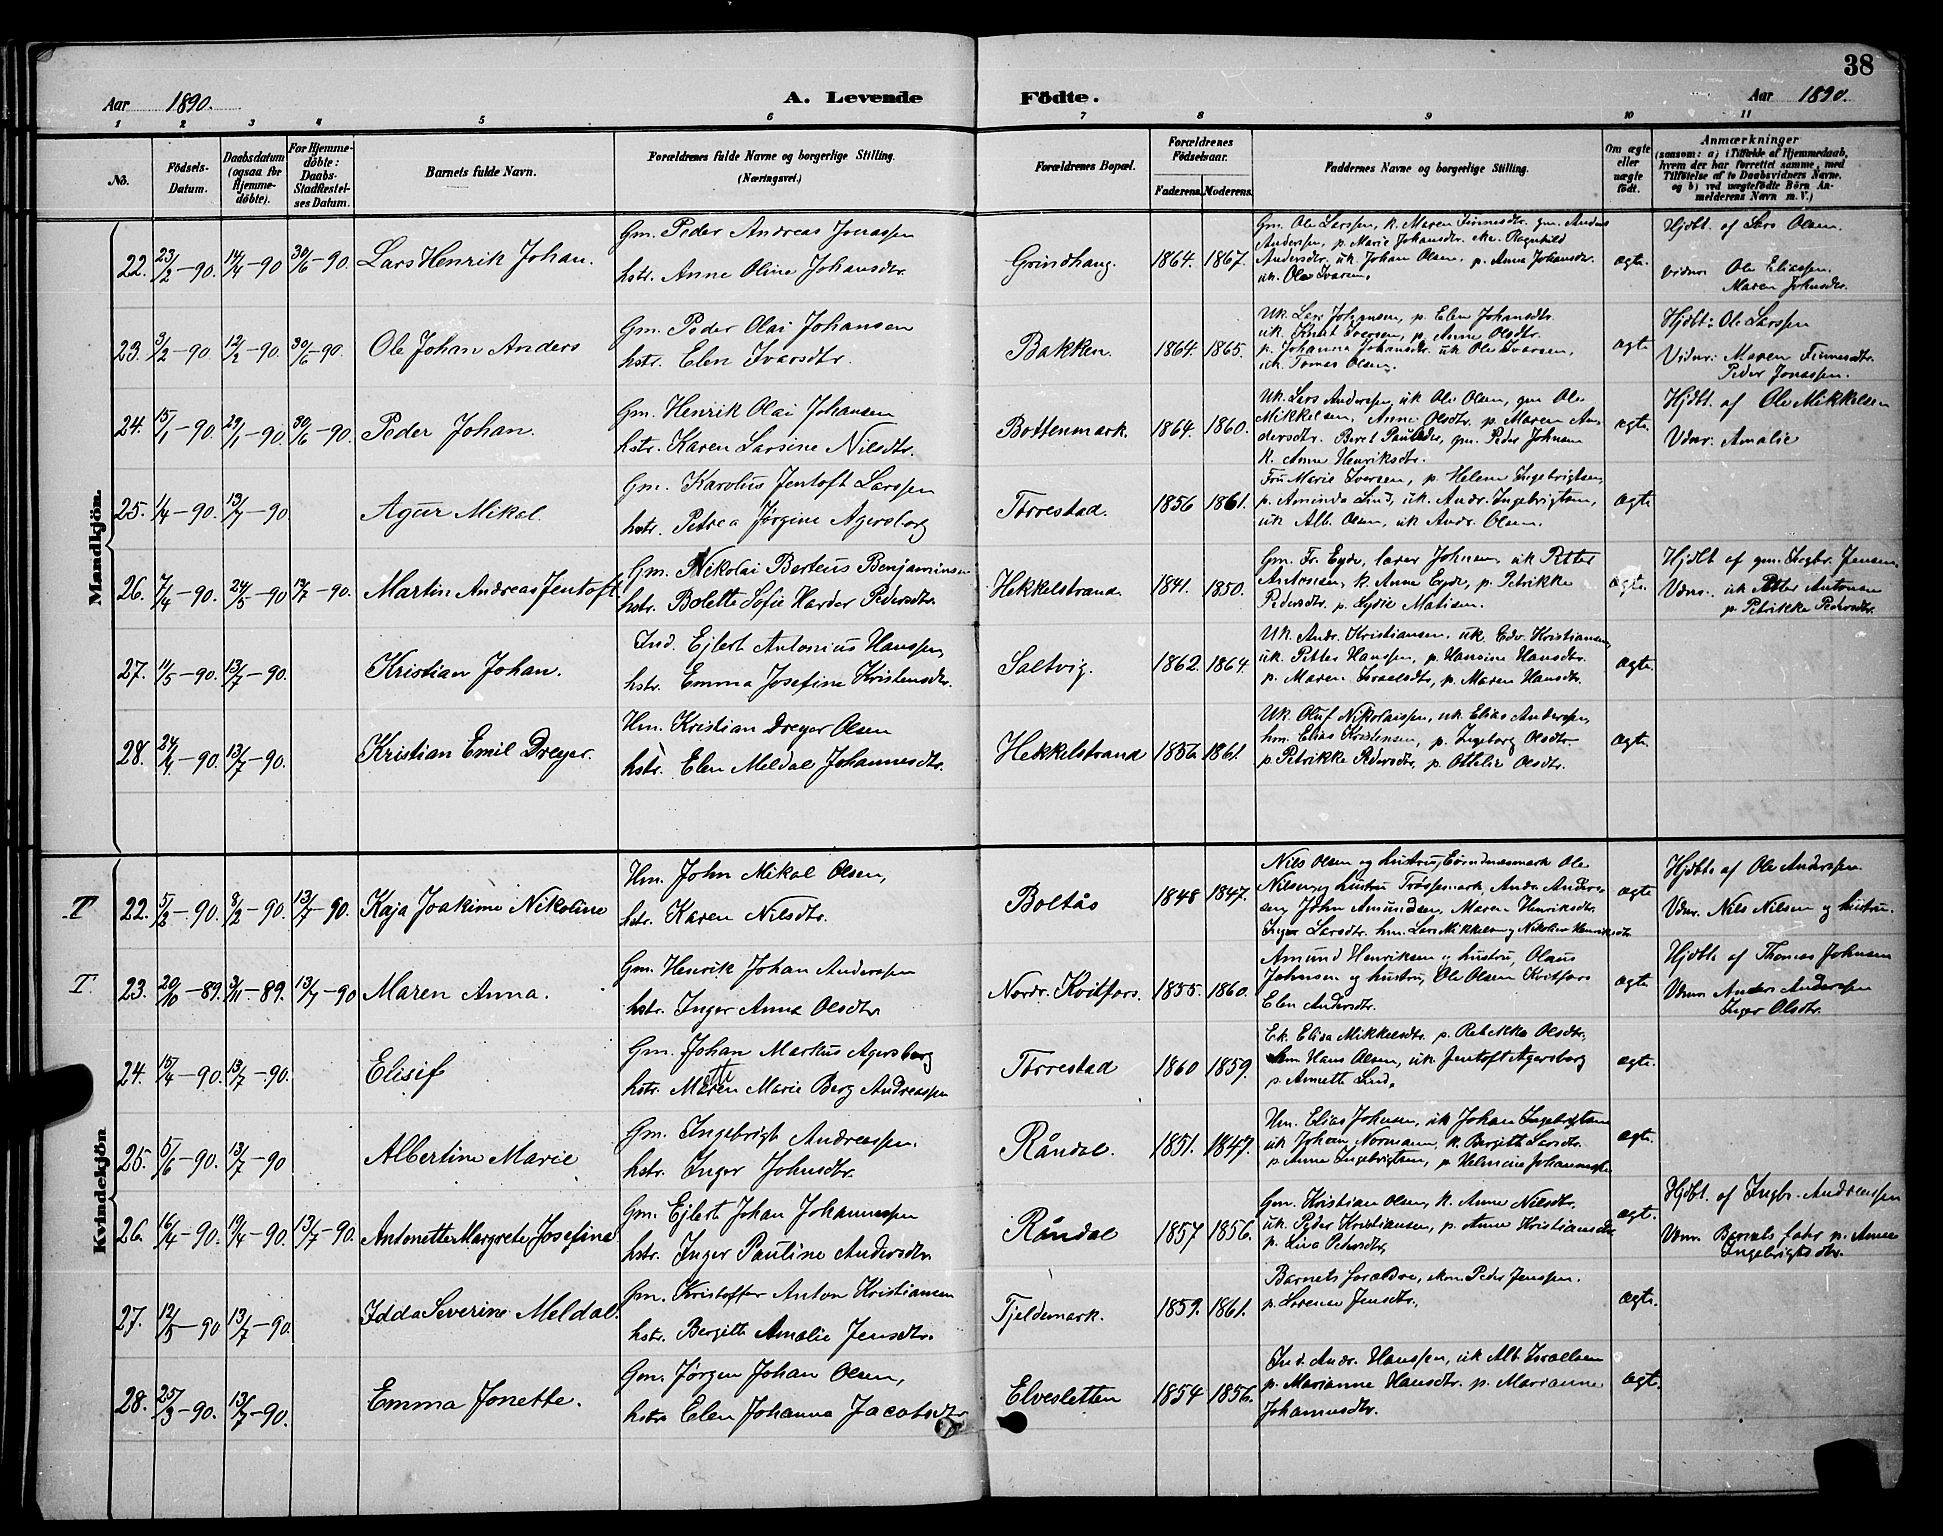 38
Aar 1890. A. Levende Födte. Aar 1890.
1 2 3 4 5 6 7 8 9 10 11
No. Födsels-Datum. Daabsdatum (ogsaa for Hjemmedöbte). For Hjemmedöbte: Daabs-Stadfæstelses Datum. Barnets fulde Navn. Forældrenes fulde Navne og borgerlige Stilling. (Næringsvei.) Forældrenes Bopæl. Forældrenes Födselsaar. Faderens. Moderens. Faddernes Navne og borgerlige Stilling. Om ægte eller uægte födt. Anmærkninger (saasom: a) i Tilfælde af Hjemmedaab, hvem der har forrettet samme, med Tilföielse af to Daabsvidners Navne, og b) ved uægtefödte Börn Anmelderens Navn m. V.)
Mandkjön.
22. 23/2-90. 14/4-90 30/6-90. Lars Henrik Johan. Gm. Peder Andreas Jonassen
hstr. Anne Oline Johansdtr. Grindhaug. 1864. 1867.
Gm. Ole Larssen, k. Maren Finnesdtr. gm. Anders
Anderssen, p. Marie Johansdtr. Ragnhild
Andersdtr. uk. Johan Olsen, p. Anna Johansdtr.
uk. Ole Ivarsen. ægte.
Hjdbt. af Lars Olsen.
vidnr. Ole Eliassen.
Maren Johnsdtr.
23. 3/2-90. 12/2-90. 30/6-90. Ole Johan Anders Gm. Peder Olai Johansen
hstr. Elen Ivarsdtr. Bakken. 1864. 1865.
Uk. Lars Johansen, p. Elen Johansdtr.
uk. Knut Iversen, p. Anne Olsdtr.
p. Johanna Johansdtr. uk Ole Ivarsen,
uk. Tomas Olsen. ægte
Hjdbt: Ole Larssen
Vidnr: Maren Finnesdtr.
Peder Jonassen.
24. 15/1-90. 29/1-90 30/6-90. Peder Johan. Gm. Henrik Olai Johansen
hstr. Karen Larsine Nilsdtr. Bottenmark. 1864. 1860.
Uk. Lars Anderssen, uk Ole Olsen, gm Ole
Mikkelsen, Anne Olsdtr. p. Maren An-
dersdtr. Beret Paulsdtr, gm. Peder Johnsen
k. Anne Henriksdtr. ægte.
Hjdbt. af Ole Mikkelsen
Vdnr. Amalie
25. 1/4-90. 13/7-90 Agur Mikal. Gm. Karolus Jentoft Larssen
hstr. Petrea Jørgine Agersborg Torrestad. 1856 1861.
Fru Marie Iversen, p. Helene Ingebrigtsen,
p. Aminda Lind, uk. Andr. Ingebrigtsen,
uk Alb. Olsen, uk Andr. Olsen. ægte
26. 7/4-90. 24/5-90 13/7-90. Martin Andreas Jentoft Gm. Nikolai Berteus Benjaminsen
hstr. Bolette Sofie Harder Pedersdtr. Hekkelstrand. 1841. 1850.
Gm. Fr. Eyde, lærer Johnsen, uk Petter
Antonsen, k. Anne Eyde, p. Petrikke
Pedersdtr. p. Lydie Matisen. ægte.
Hjdbt af gm. Ingbr. Jensen
Vdnr. uk Petter Antonsen
p. Petrikke Pedersdtr.
27. 11/5-90. 13/7-90. Kristian Johan. Ind. Ejlert Antonius Hanssen,
hstr. Emma Josefine Kristensdtr. Saltvig. 1862. 1864.
Uk. Andr. Kristiansen. uk. Edv. Kristiansen,
uk. Petter Hanssen, p. Hansine Hansdtr.
p. Maren Israelsdtr, p. Maren Hansdtr. ægte.
28. 24/4-90. 13/7-90. Kristian Emil Dreyer. Hm. Kristian Dreyer Olsen
hstr. Elen Meldal Johannesdtr. Hekkelstrand 1856 1861.
Uk. Oluf Nikolaissen, uk. Elias Anderssen,
hm. Elias Kristensen, p. Ingeborg Olsdtr.
p. Petrikke Pedersdtr, p. Ottelie Olsdtr. ægte.
Kvindekjön
T 22. 5/2-90. 8/2-90. 13/7-90. Kaja Joakime Nikoline Hm. John Mikal Olsen,
hstr. Karen Nilsdtr. Boltås 1848 1847.
Nils Olsen og hustru, Ole
Nilsen og hustru Andr. Anders-
sen, John Amundsen, Maren Henriksdtr.
Inger Larsdtr. hm. Lars Mikkelsen og Nikoline Henriksdtr. ægte
Hjdbt. af Ole Anderssen
Vdnr. Nils Nilsen og hustru.
T. 23. 20/10-89. 3/11-89. 13/7-90 Maren Anna. Gm. Henrik Johan Anderssen
hstr. Inger Anna Olsdtr. Nordr. Kvitfors. 1855. 1860.
Amund Henriksen og hustru, Olaus
Johnsen og hustru, Ole Olsen Kvitfors
Elen Andersdtr. ægte.
Hjdbt. af Thomas Johnsen
Vdnr. Anders Anderssen
Inger Olsdtr.
24. 15/4-90. 13/7-90. Elisif Gm. Johan Markus Agersborg
hstr. Maren Marie Berg Andreassen Torrestad 1860 1859.
Ek. Elisa Mikkelsdtr. p. Rebekka Olsdtr,
Hans Olsen, uk Jentoft Agersborg
p Annette Lind. ægte.
25. 5/6-90. 13/7-90 Albertine Marie Gm. Ingebrigt Andreassen.
hstr. Inger Johnsdtr. Råndal. 1851. 1847.
Hm. Elias Johnsen, uk Johan Ingebrigtsen
uk Johan Normann, k. Bergitte Larsdtr.
p. Anne Ingebrigtsen, p. Helmine Johannessen ægte.
26. 16/4-90. 19/4-90. 13/7-90. Antonette Margrete Josefine Gm. Ejlert Johan Johannessen
hstr. Inger Pauline Andersdtr. Råndal 1857 1856.
Gm. Kristian Olsen, k. Anne Nilsdtr.
uk. Peder Kristiansen, p. Anne Kristiansdtr
p. Lina Pedersdtr, ægte.
Hjdbt. af Ingbr. Andreassen
Vdnr. Barnets fader p. Anne
Ingebrigtsdtr.
27. 12/5-90 13/7-90. Idda Severine Meldal. Gm. Kristoffer Anton Kristiansen
hstr. Bergitte Amalie Jensdtr. Tjeldemark. 1859. 1861.
Barnets forældre, Peder Jenssen.
p. Lorense Jensdtr. ægte.
28. 25/3-90. 13/7-90. Emma Jonette. Gm. Jørgen Johan Olsen,
hstr. Elen Johanna Jacobsdtr Elvesletten 1854 1856.
Ind. Andr. Hanssen, uk Alb. Israelsen
p. Marianne Hansdtr. p. Marianne
Johannesdtr. ægte.